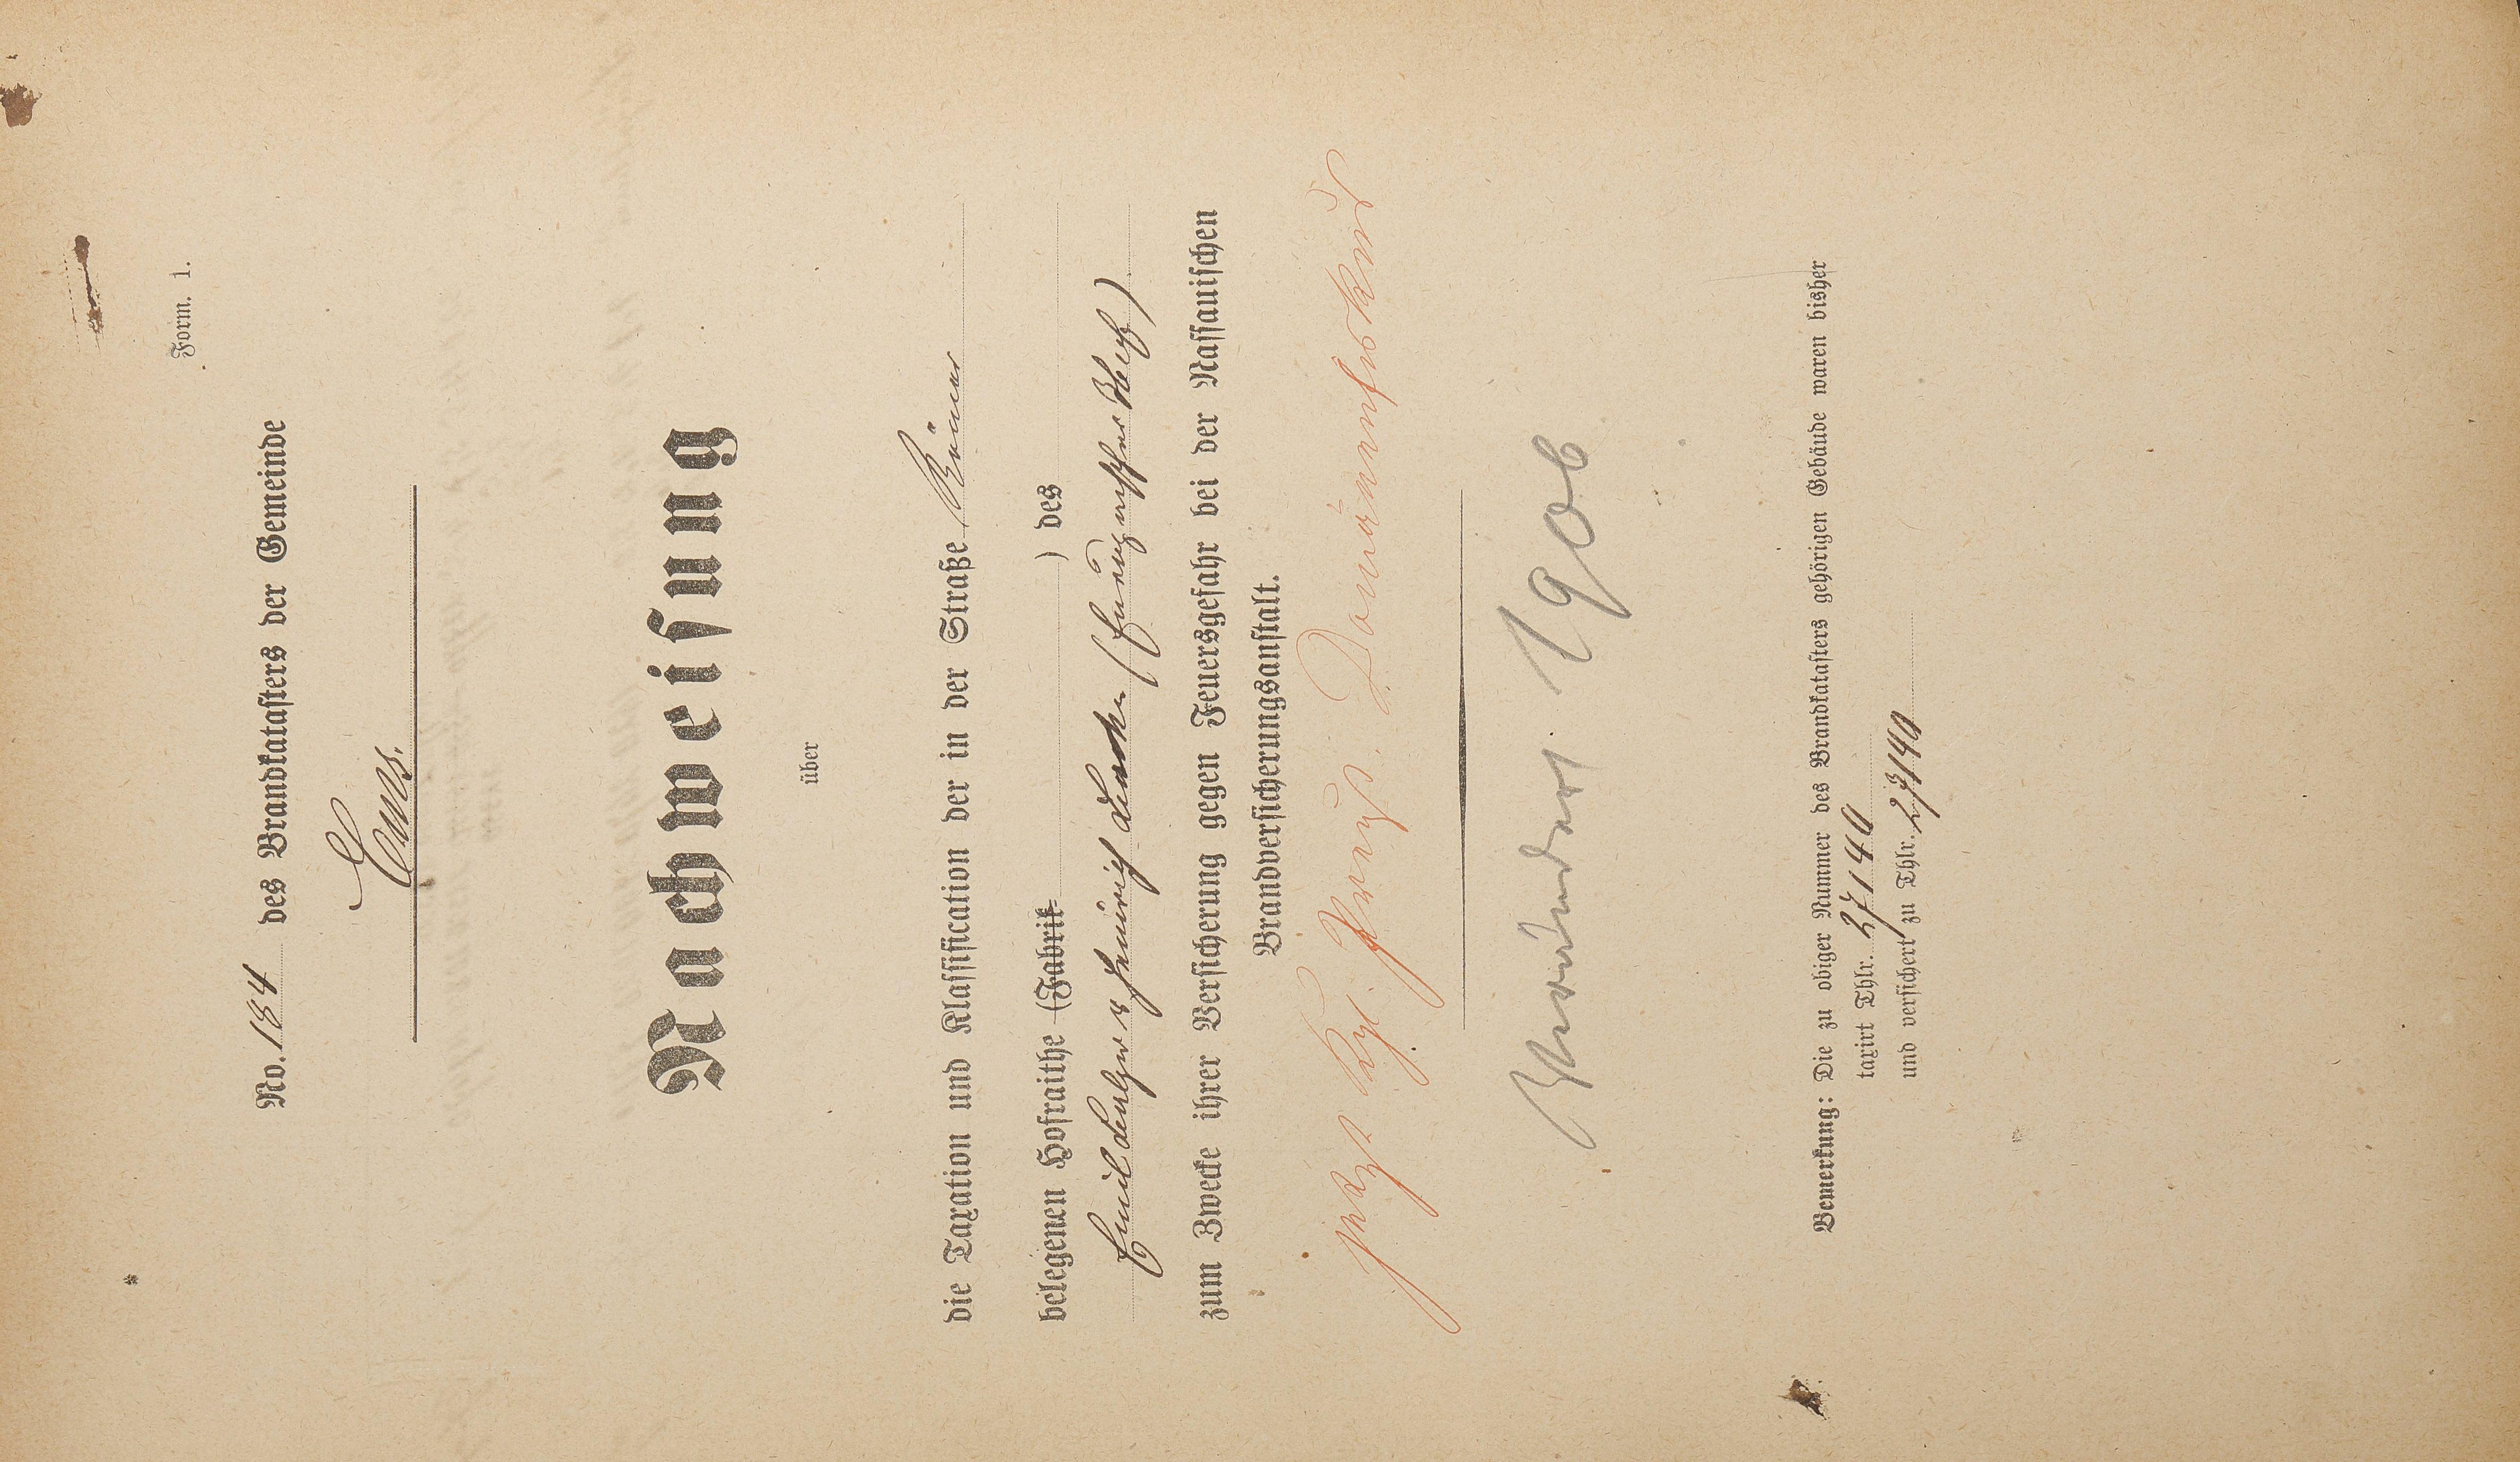 Form. 1.
No. 184 des Brandkatasters der Gemeinde
Ems.
Nachweisung
über
die Taxation und Klassification der in der Straße Römer
belegenen Hofraithe (Fabrik ) des
Emil und Heinrich
zum Zwecke ihrer Versicherung gegen Feuersgefahr bei der Nassauischen
Brandversicherungsanstalt.
jetzt Kgl. Preuß. Domänenfiskus
Verändert 1906
Bemerkung: Die zu obiger Nummer des Brandkatasters gehörigen Gebäude waren bisher
taxirt Thlr. 27140
und versichert zu Thlr. 27140